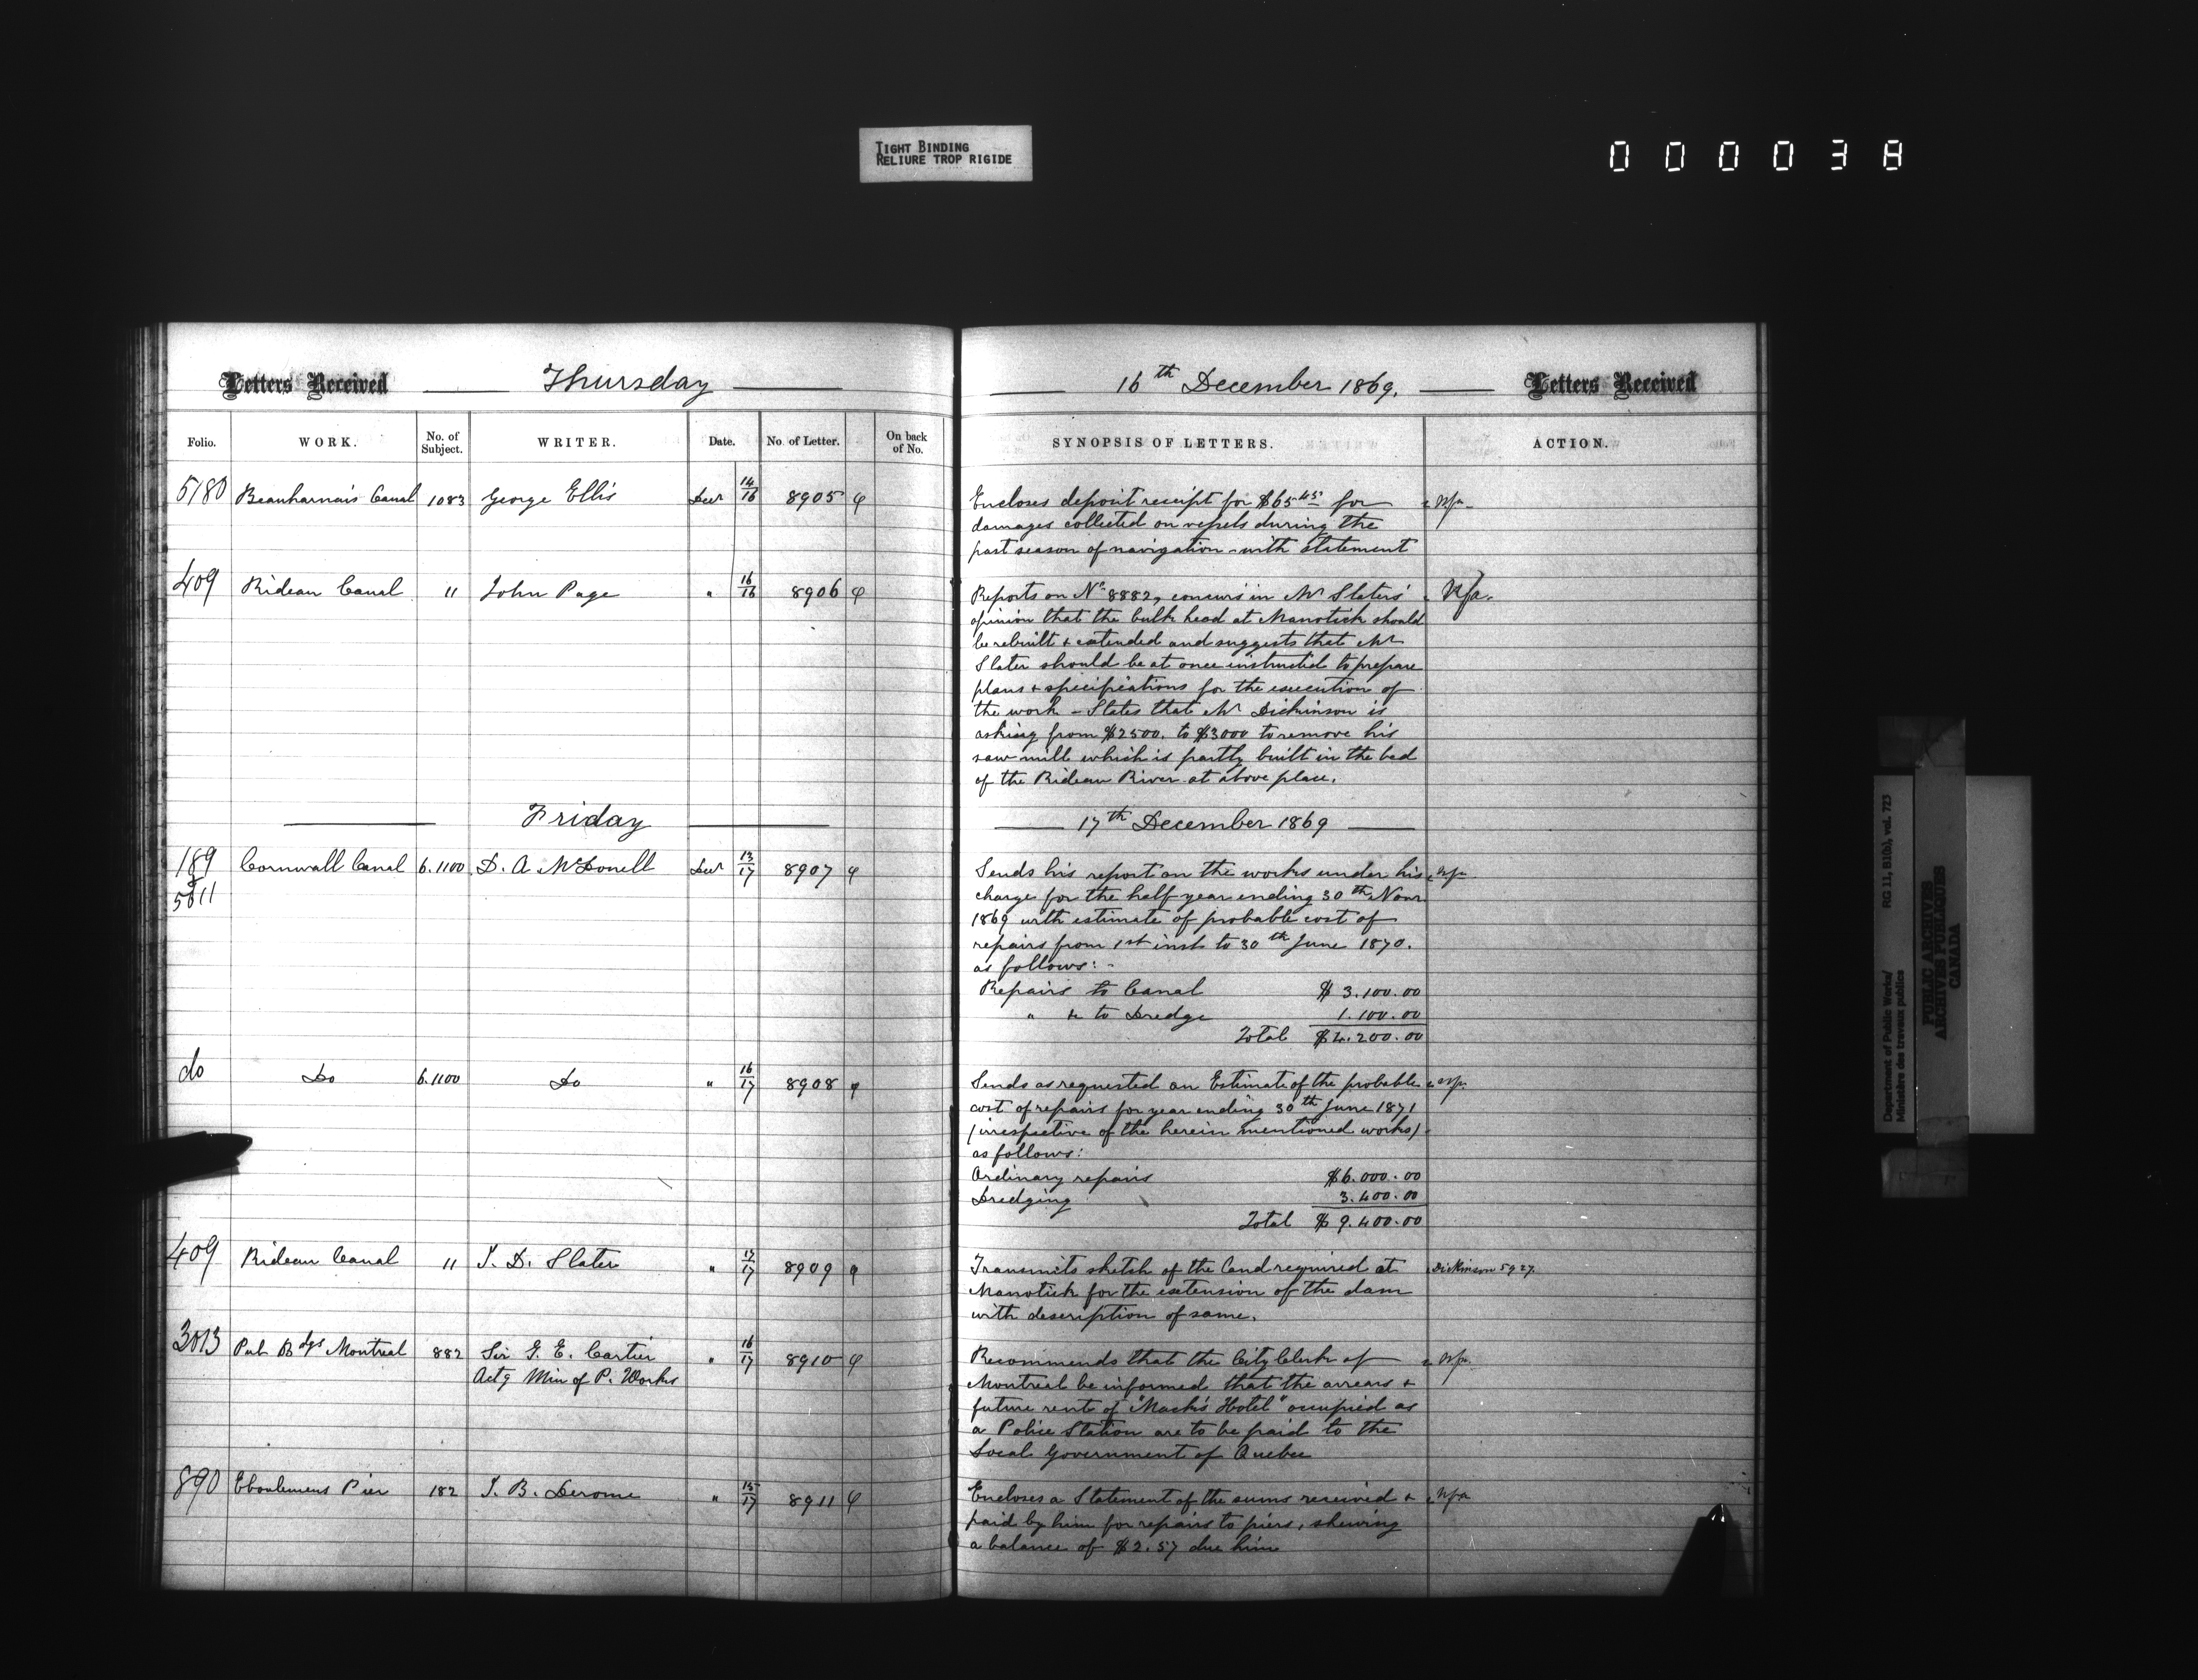 TIGHT BINDING
RELIURE TROP RIGIDE
000038
Letters Received Thursday
Folio. WORK. No. of Subject. WRITER. Date. No. of Letter. On back of No.
5180 Beauharnais Canal 1083 George Ellis Decr 14/16 8905 φ
409 Rideau Canal 11 John Page " 16/16 8906 φ
Friday
189 Cornwall Canal 6.1100 D. A. McDonell Decr 13/17 8907 φ
& 5811
do Do 6.1100 Do " 16/17 8908 φ
409 Rideau Canal 11 J. D. Slater " 17/17 8909 φ
3013 Pub Bdgs Montreal 882 Sir G. E. Cartier " 16/17 8910 φ
Actg Min of P. Works
890 Eboulemens Pier 182 J. B. Derome " 15/17 8911 φ
16th December 1869. Letters Received
SYNOPSIS OF LETTERS. ACTION.
Encloses deposit receipt for $65 45 for Nfa
damages collected on vessels during the
past season of navigation - with statement
Reports on No 8882, concurs in Mr Slaters' Nfa.
opinion that the bulk head at Manotick should
be rebuilt & extended and suggests that Mr
Slater should be at once instructed to prepare
plans & specifications for the execution of
the work - States that Mr Dickinson is
asking from $2500. to $3000 to remove his
saw mill which is partly built in the bed
of the Rideau River at above place.
17th December 1869
Sends his report on the works under his Nfa
charge for the half year ending 30th Novr
1869 with estimate of probable cost of
repairs from 1st inst to 30th June 1870.
as follows: -
Repairs to Canal $ 3.100.00
" &c to Dredge 1.100.00
Total $4.200.00
Sends as requested an Estimate of the probable Nfa.
cost of repairs for year ending 30th June 1871
(irrespective of the herein mentioned works)
as follows:
Ordinary repairs $6.000.00
Dredging 3.400.00
Total $ 9.400.00
Transmits sketch of the land required at Dickinson 5927.
Manotick for the extension of the dam
with description of same.
Recommends that the City Clerk of Nfa.
Montreal be informed that the arrears &
future rents of "Mack's Hotel" occupied as
a Police Station are to be paid to the
Local Government of Quebec
Encloses a Statement of the sums received & Nfa
paid by him for repairs to piers, shewing
a balance of $2.57 due him
Department of Public Works/ RG 11, B1(b), vol. 723
Ministère des travaux publics
PUBLIC ARCHIVES
ARCHIVES PUBLIQUES
CANADA